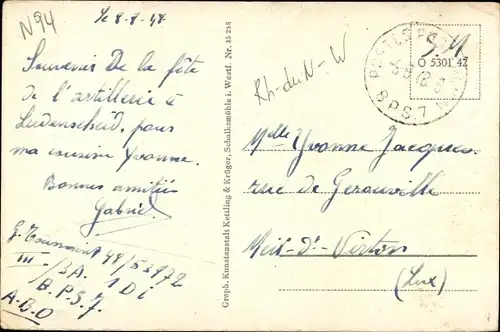 N94
Le 8-8-48.
Souvenir De la fête
de l'artillerie à
Ludenscheid, pour
ma cousine Yvonne.
Bonnes amitiés
Gabriel
G. Toussaint 48/53972
III /3A. 1 Di
/B.P.S. 7.
A.B.O
Graph. Kunstanstalt Kettling & Krüger, Schalksmühle i. Westf. Nr. 35 258
Rh-du-N-W
S.M
O 5301 42
BPS7
Melle Yvonne Jacques.
rue de Gerouville
Meix-Dt-Virton
(Lux)